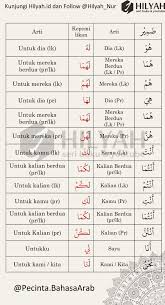 Kunjungi Hilyah.id dan Follow @Hilyah_Nur
HILYAH
Arti Kepemilikan Arti ضَمِيْر
Untuk dia (lk) لَهُ Dia (Lk) هُوَ
Untuk mereka berdua (pr/lk) لَهُمَا Mereka Berdua (Lk / Pr) هُمَا
Untuk mereka (lk) لَهُمْ Mereka (Lk) هُمْ
Untuk dia (pr) لَهَا Dia (Pr) هِيَ
Untuk mereka berdua (pr/lk) لَهُمَا Mereka Berdua (Lk / Pr) هُمَا
Untuk mereka (pr) لَهُنَّ Mereka (Pr) هُنَّ
Untuk kamu (lk) لَكَ Kamu (Lk) أَنْتَ
Untuk kalian berdua (pr/lk) لَكُمَا Kalian Berdua (pr/lk) أَنْتُمَا
Untuk kalian (lk) لَكُمْ Kalian (Lk) أَنْتُمْ
Untuk kamu (pr) لَكِ Kamu (Pr) أَنْتِ
Untuk kalian berdua (pr/lk) لَكُمَا Kalian Berdua (pr/lk) أَنْتُمَا
Untuk kalian (pr) لَكُنَّ Kalian (Pr) أَنْتُنَّ
Untukku لِي Saya أَنَا
Untuk kami / kita لَنَا Kami / Kita نَحْنُ
@Pecinta.BahasaArab